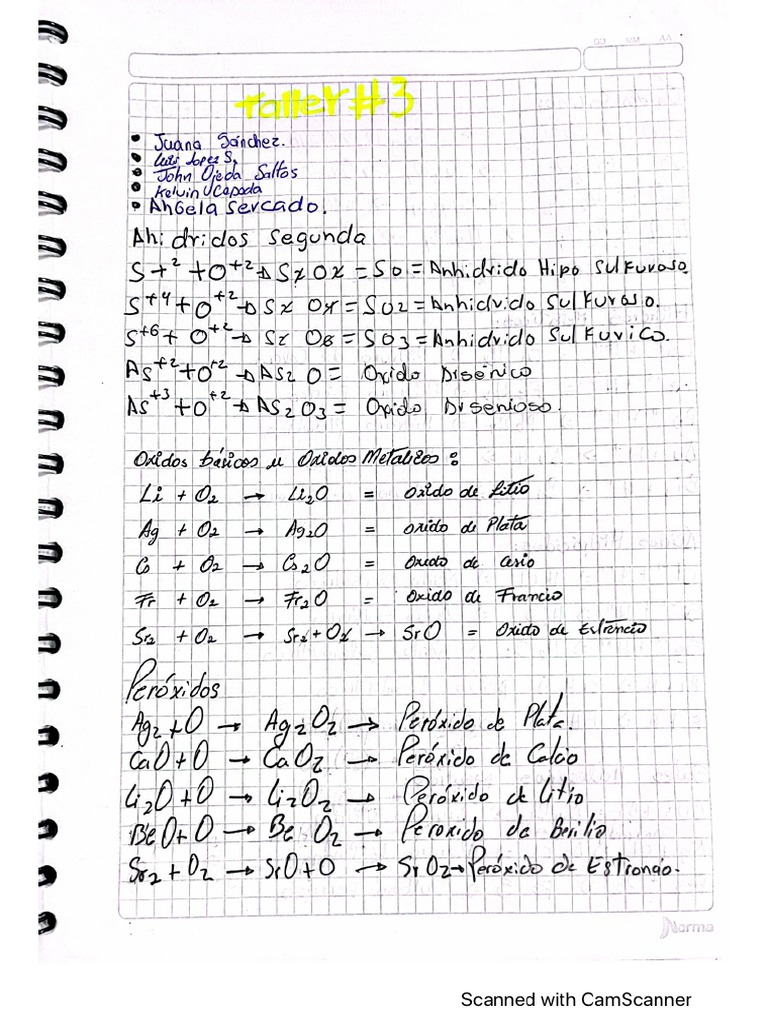 DD MM AA
Taller #3
• Juana Sánchez.
• Luis Lopez S,
• John Ojeda Saltos
• Kelvin Ucapada
• Angela Sercado.
Ahidridos segunda
S+² + O+² → S2 O2 = SO = Anhidrido Hipo Sulfuroso.
S+4 + O+² → S2 O4 = SO2 = Anhidrido Sulfuroso.
S+6 + O+² → S2 O6 = SO3 = Anhidrido Sulfurico.
As+² + O+² → AS2 O = Oxido Arsénico
As+³ + O+² → AS2 O3 = Oxido Arsenioso.
Oxidos básicos u Oxidos Metalicos:
Li + O2 → Li2O = oxido de Litio
Ag + O2 → Ag2O = oxido de Plata
Cs + O2 → Cs2O = Oxido de cesio
Fr + O2 → Fr2O = Oxido de Francio
Sr2 + O2 → Sr2 + O2 → SrO = Oxido de Estroncio
Peróxidos
Ag2 + O → Ag2O2 → Peróxido de Plata.
CaO + O → CaO2 → Peróxido de Calcio
Li2O + O → Li2O2 → Peróxido de Litio
BeO + O → Be O2 → Peroxido de Berilio
Sr2 + O2 → SrO + O → SrO2 → Peróxido de Estroncio.
Norma
Scanned with CamScanner